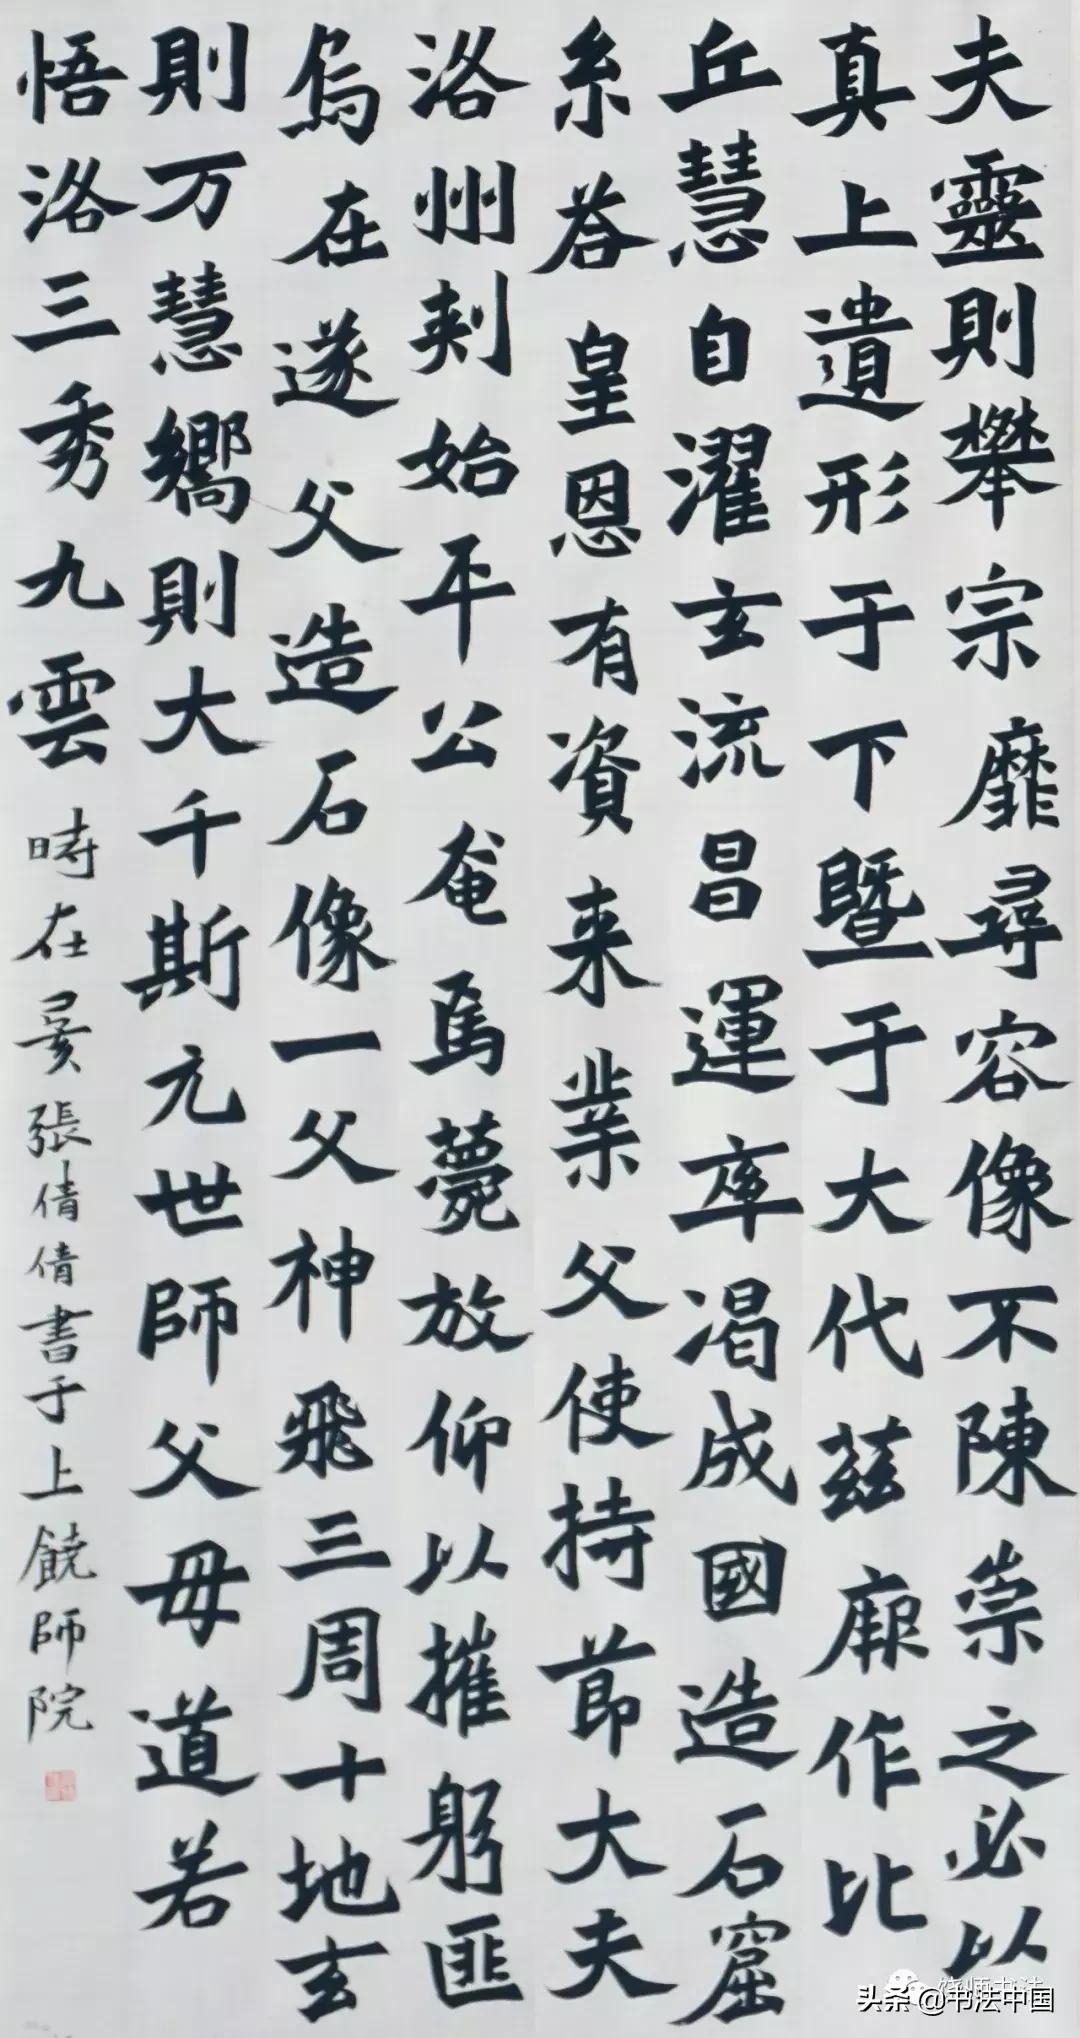 夫靈則攀宗靡尋容像不陳崇之必以
真上遺形于下暨于大代茲厥作比
丘慧自濯玄流昌運率渴成國造石窟
糸荅皇恩有資来業父使持節大夫
洛州刾始平公奄焉薨放仰以摧躬匪
烏在遂父造石像一父神飛三周十地玄
則万慧嚮則大千斯元世師父母道若
悟洛三秀九雲
時在 張倩倩書于上饒師院
饶师书法
头条 @书法中国